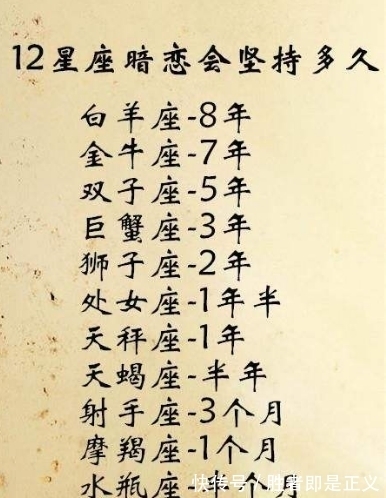 12星座暗恋会坚持多久
白羊座-8年
金牛座-7年
双子座-5年
巨蟹座-3年
狮子座-2年
处女座-1年半
天秤座-1年
天蝎座-半年
射手座-3个月
摩羯座-1个月
水瓶座-
快传号/胜者即是正义